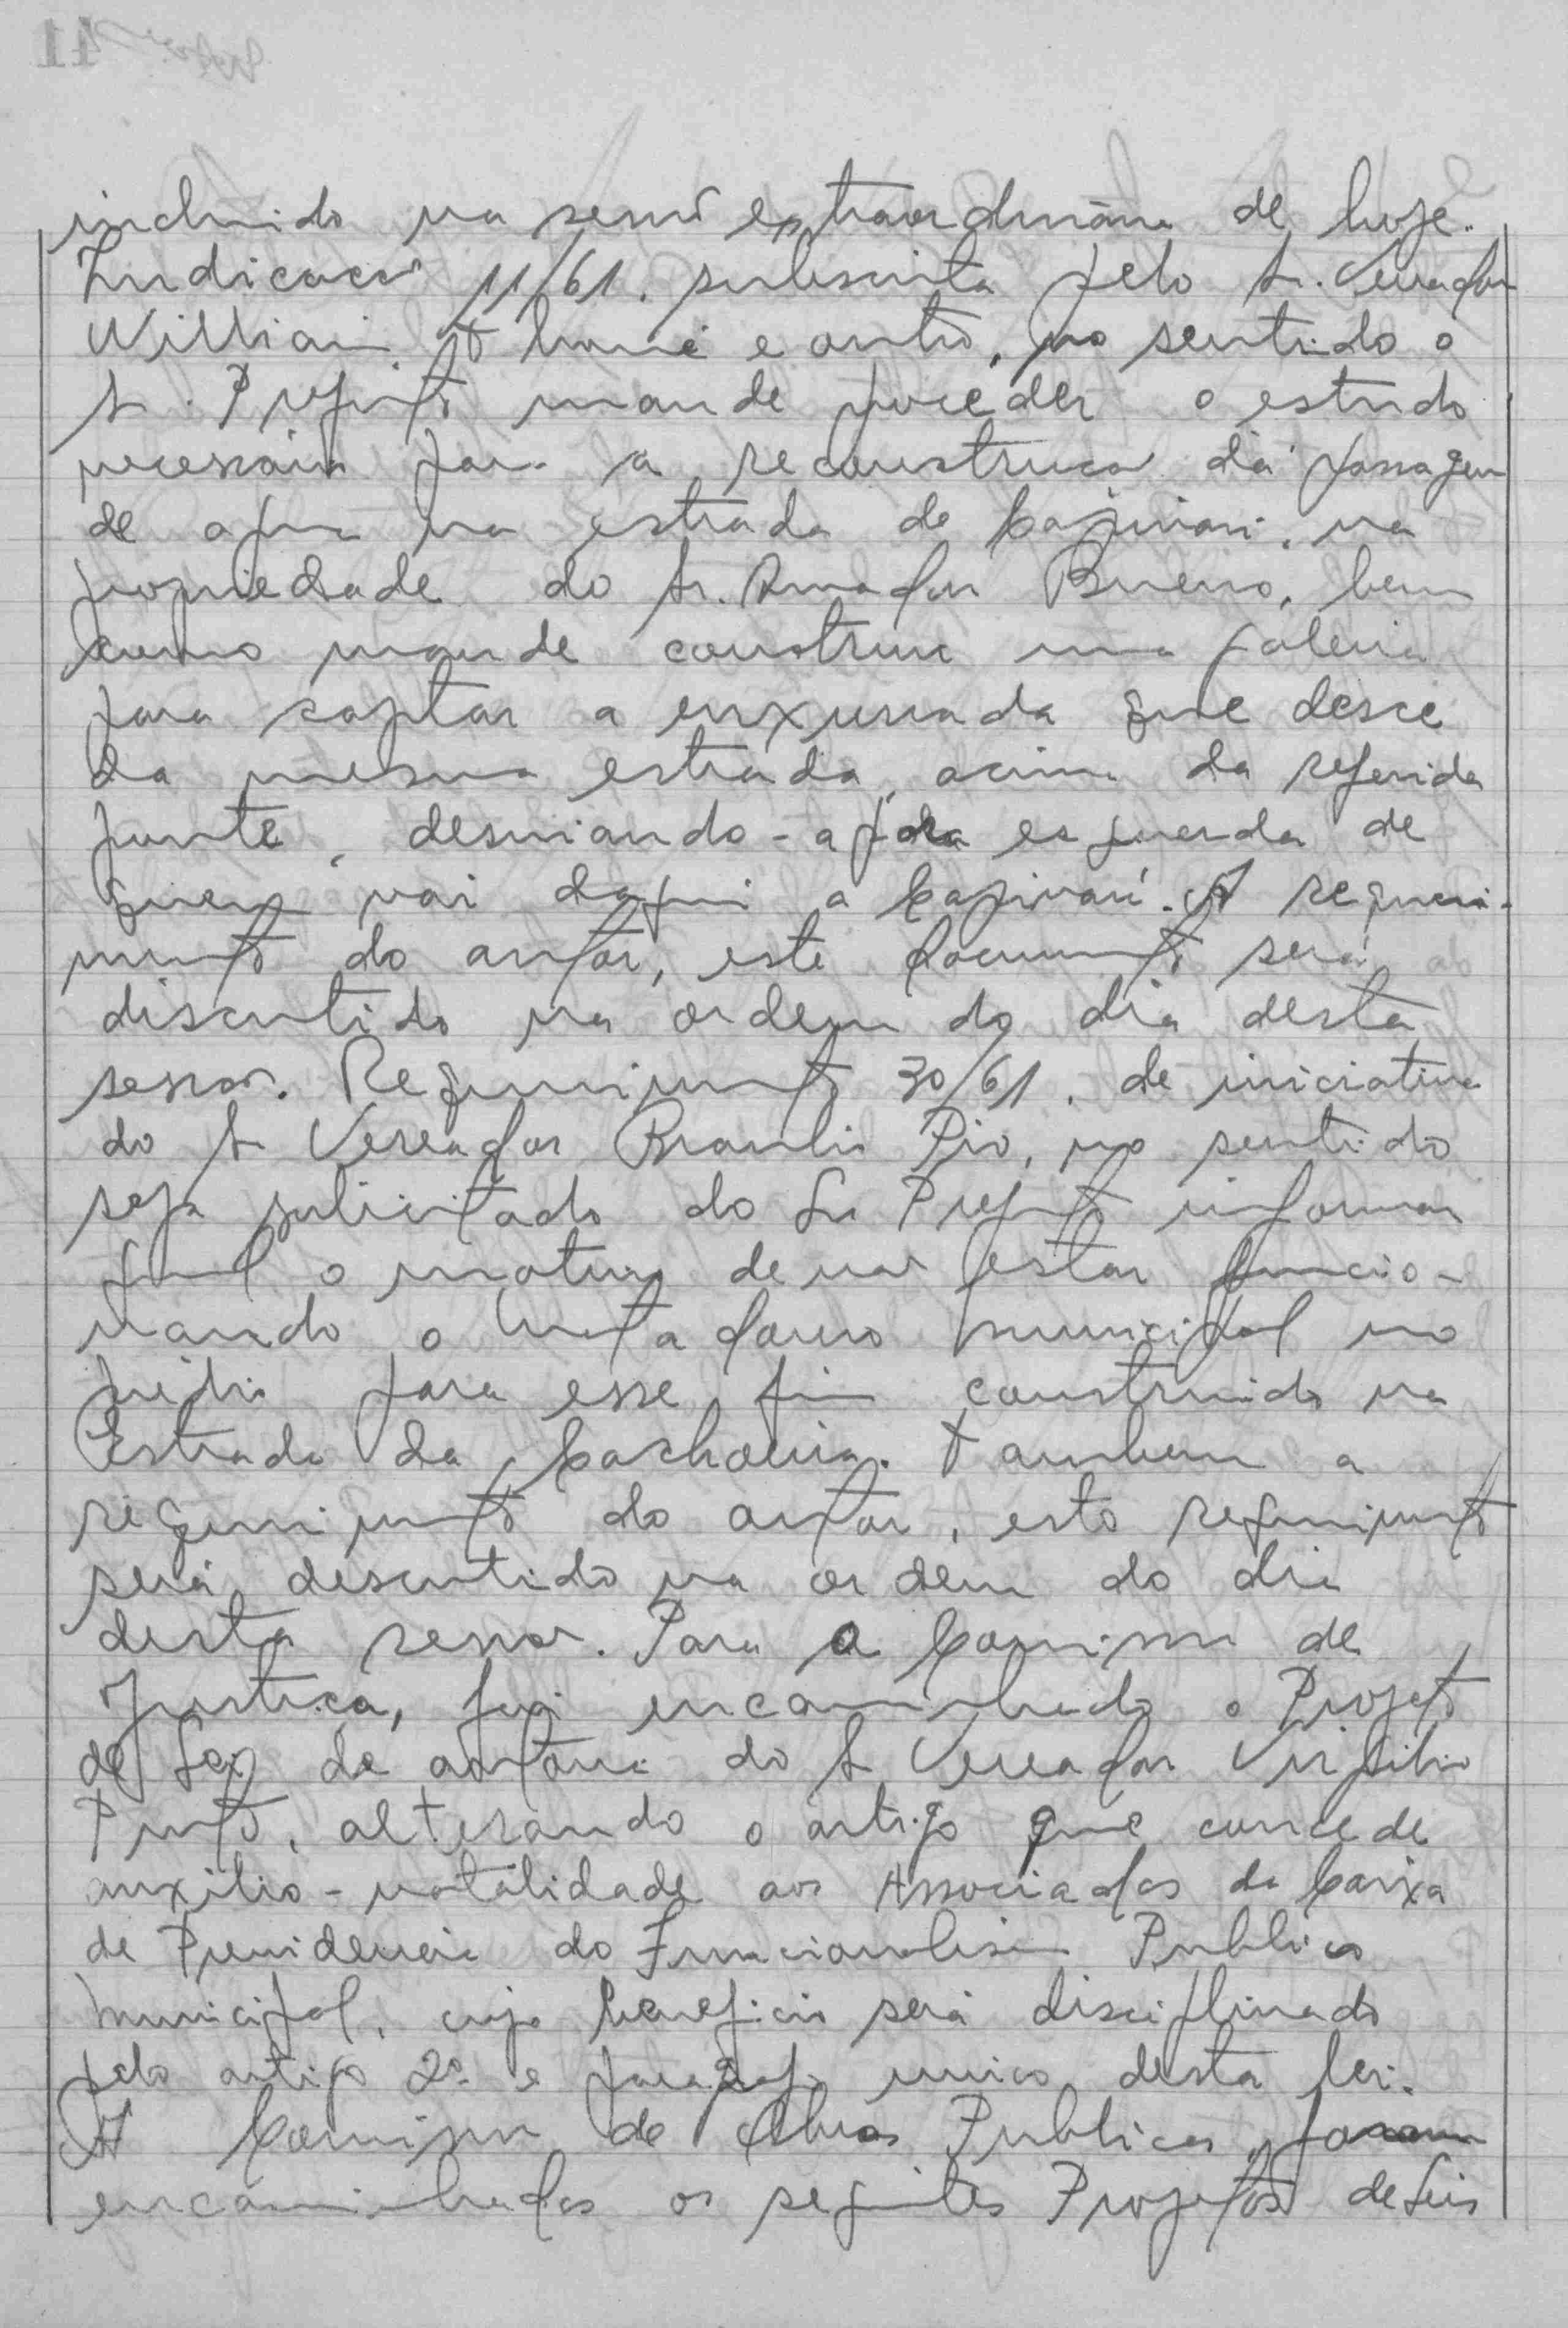 incluido na sessão extraordinária de hoje.
Indicacão 11/61. subscrita pelo Sr. Vereador
William e outro, no sentido o
Sr. Prefeito mande proceder o estudo
necessario para a reconstrucão da passagem
de agua na estrada de Capivari, na
propriedade do Sr. Amador Bueno, bem
como mande construir uma galeria
para captar a enxurrada que desce
da mesma estrada, acima da referida
ponte, desviando-a pela esquerda de
quem vai daqui a Capivarí. A requeri-
mento do autor, este documento será
discutido na ordem do dia desta
sessão. Requerimento 30/61, de iniciativa
do Sr Vereador Braulio Pio, no sentido
seja solicitado do Sr Prefeito informar
qual o motivo de não estar funcio-
nando o matadouro municipal no
prédio para esse fim construido na
Estrada da Cachoeira. Tambem a
requerimento do autor, esto requerimento
será discutido na ordem do dia
desta sessão. Para a Comissão de
Justica, foi encaminhado o Projeto
de Lei de autoria do Sr Vereador Virgilio
Pinto, alterando o artigo que concede
auxilio-natalidade aos Associados da Caixa
de Previdencia do Funcionalismo Publico
Municipal, cujo beneficio será disciplinado
pelo artigo 2º e paragrafo unico desta lei.
A Comissão de Obras Publicas, foram
encaminhados os seguintes Projetos de Leis
41